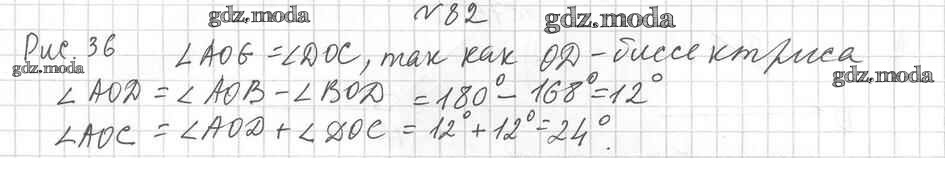 №82
gdz.moda gdz.moda
Рис. 36 ∠AOG = ∠DOC, так как OD - биссектриса
gdz.moda gdz.moda
∠AOD = ∠AOB - ∠BOD = 180° - 168° = 12°
∠AOC = ∠AOD + ∠DOC = 12° + 12° = 24°.